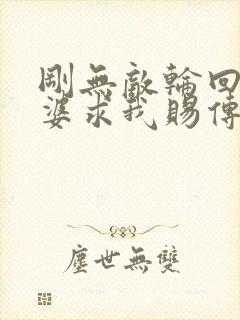 剛無敵輪回
婆求我賜傳
塵世無雙